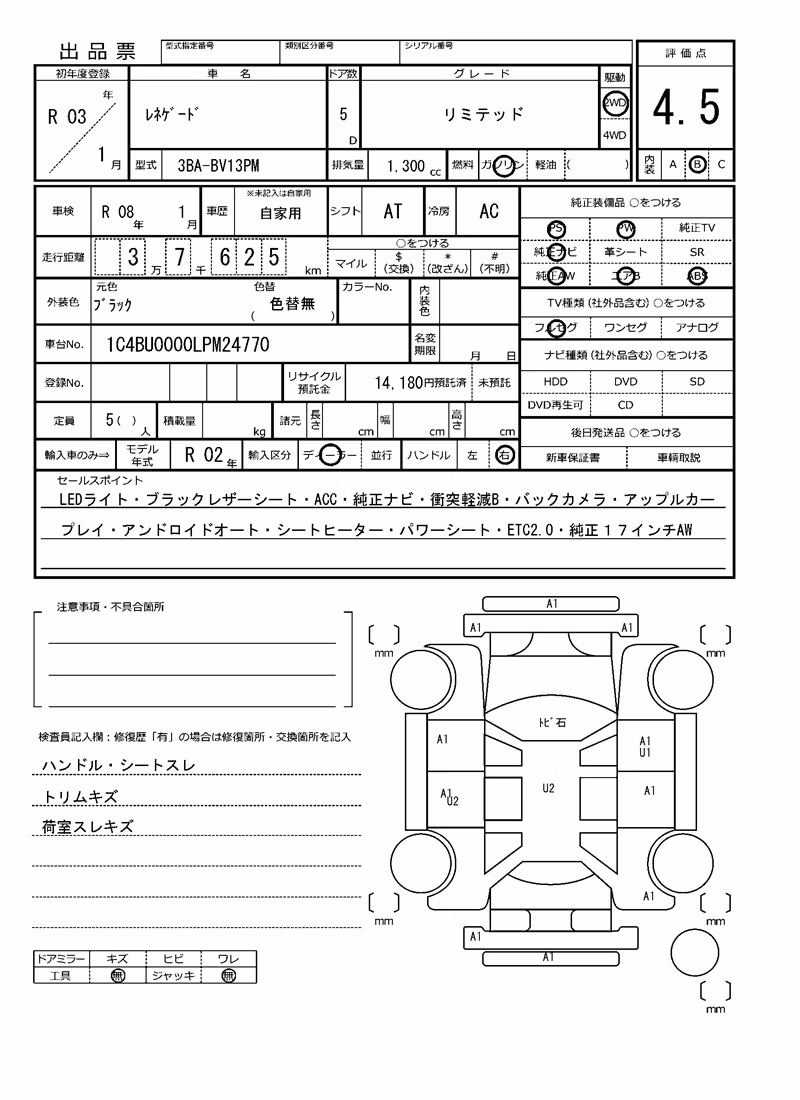 出品票
型式指定番号 類別区分番号 シリアル番号
評価点
4.5
内装 A B C
初年度登録 車名 ドア数 グレード 駆動
R 03 年 1 月 ﾚﾈｹﾞｰﾄﾞ 5 D リミテッド 2WD
4WD
型式 3BA-BV13PM 排気量 1,300 cc 燃料 ガソリン 軽油 ( )
車検 R 08 年 1 月 車歴 ※未記入は自家用 自家用 シフト AT 冷房 AC
走行距離 3 万 7 千 6 2 5 km
○をつける
マイル $ (交換) * (改ざん) # (不明)
外装色 元色 ﾌﾞﾗｯｸ 色替 ( 色替無 ) カラーNo. 内装色
車台No. 1C4BU0000LPM24770 名変期限 月 日
登録No. リサイクル預託金 14,180円預託済 未預託
定員 5 ( ) 人 積載量 kg 諸元 長さ cm 幅 cm 高さ cm
輸入車のみ⇒ モデル年式 R 02 年 輸入区分 ディーラー 並行 ハンドル 左 右
純正装備品 ○をつける
PS PW 純正TV
純正ナビ 革シート SR
純正AW エアB ABS
TV種類 (社外品含む) ○をつける
フルセグ ワンセグ アナログ
ナビ種類 (社外品含む) ○をつける
HDD DVD SD
DVD再生可 CD
後日発送品 ○をつける
新車保証書 車輌取説
セールスポイント
LEDライト・ブラックレザーシート・ACC・純正ナビ・衝突軽減B・バックカメラ・アップルカー
プレイ・アンドロイドオート・シートヒーター・パワーシート・ETC2.0・純正１７インチAW
注意事項・不具合箇所
検査員記入欄：修復歴「有」の場合は修復箇所・交換箇所を記入
ハンドル・シートスレ
トリムキズ
荷室スレキズ
ドアミラー キズ ヒビ ワレ
工具 無 ジャッキ 無
A1
A1 A1
mm mm
ﾄﾋﾞ石
A1 A1
U1
A1 U2 U2 A1
A1
mm mm
A1
A1
mm